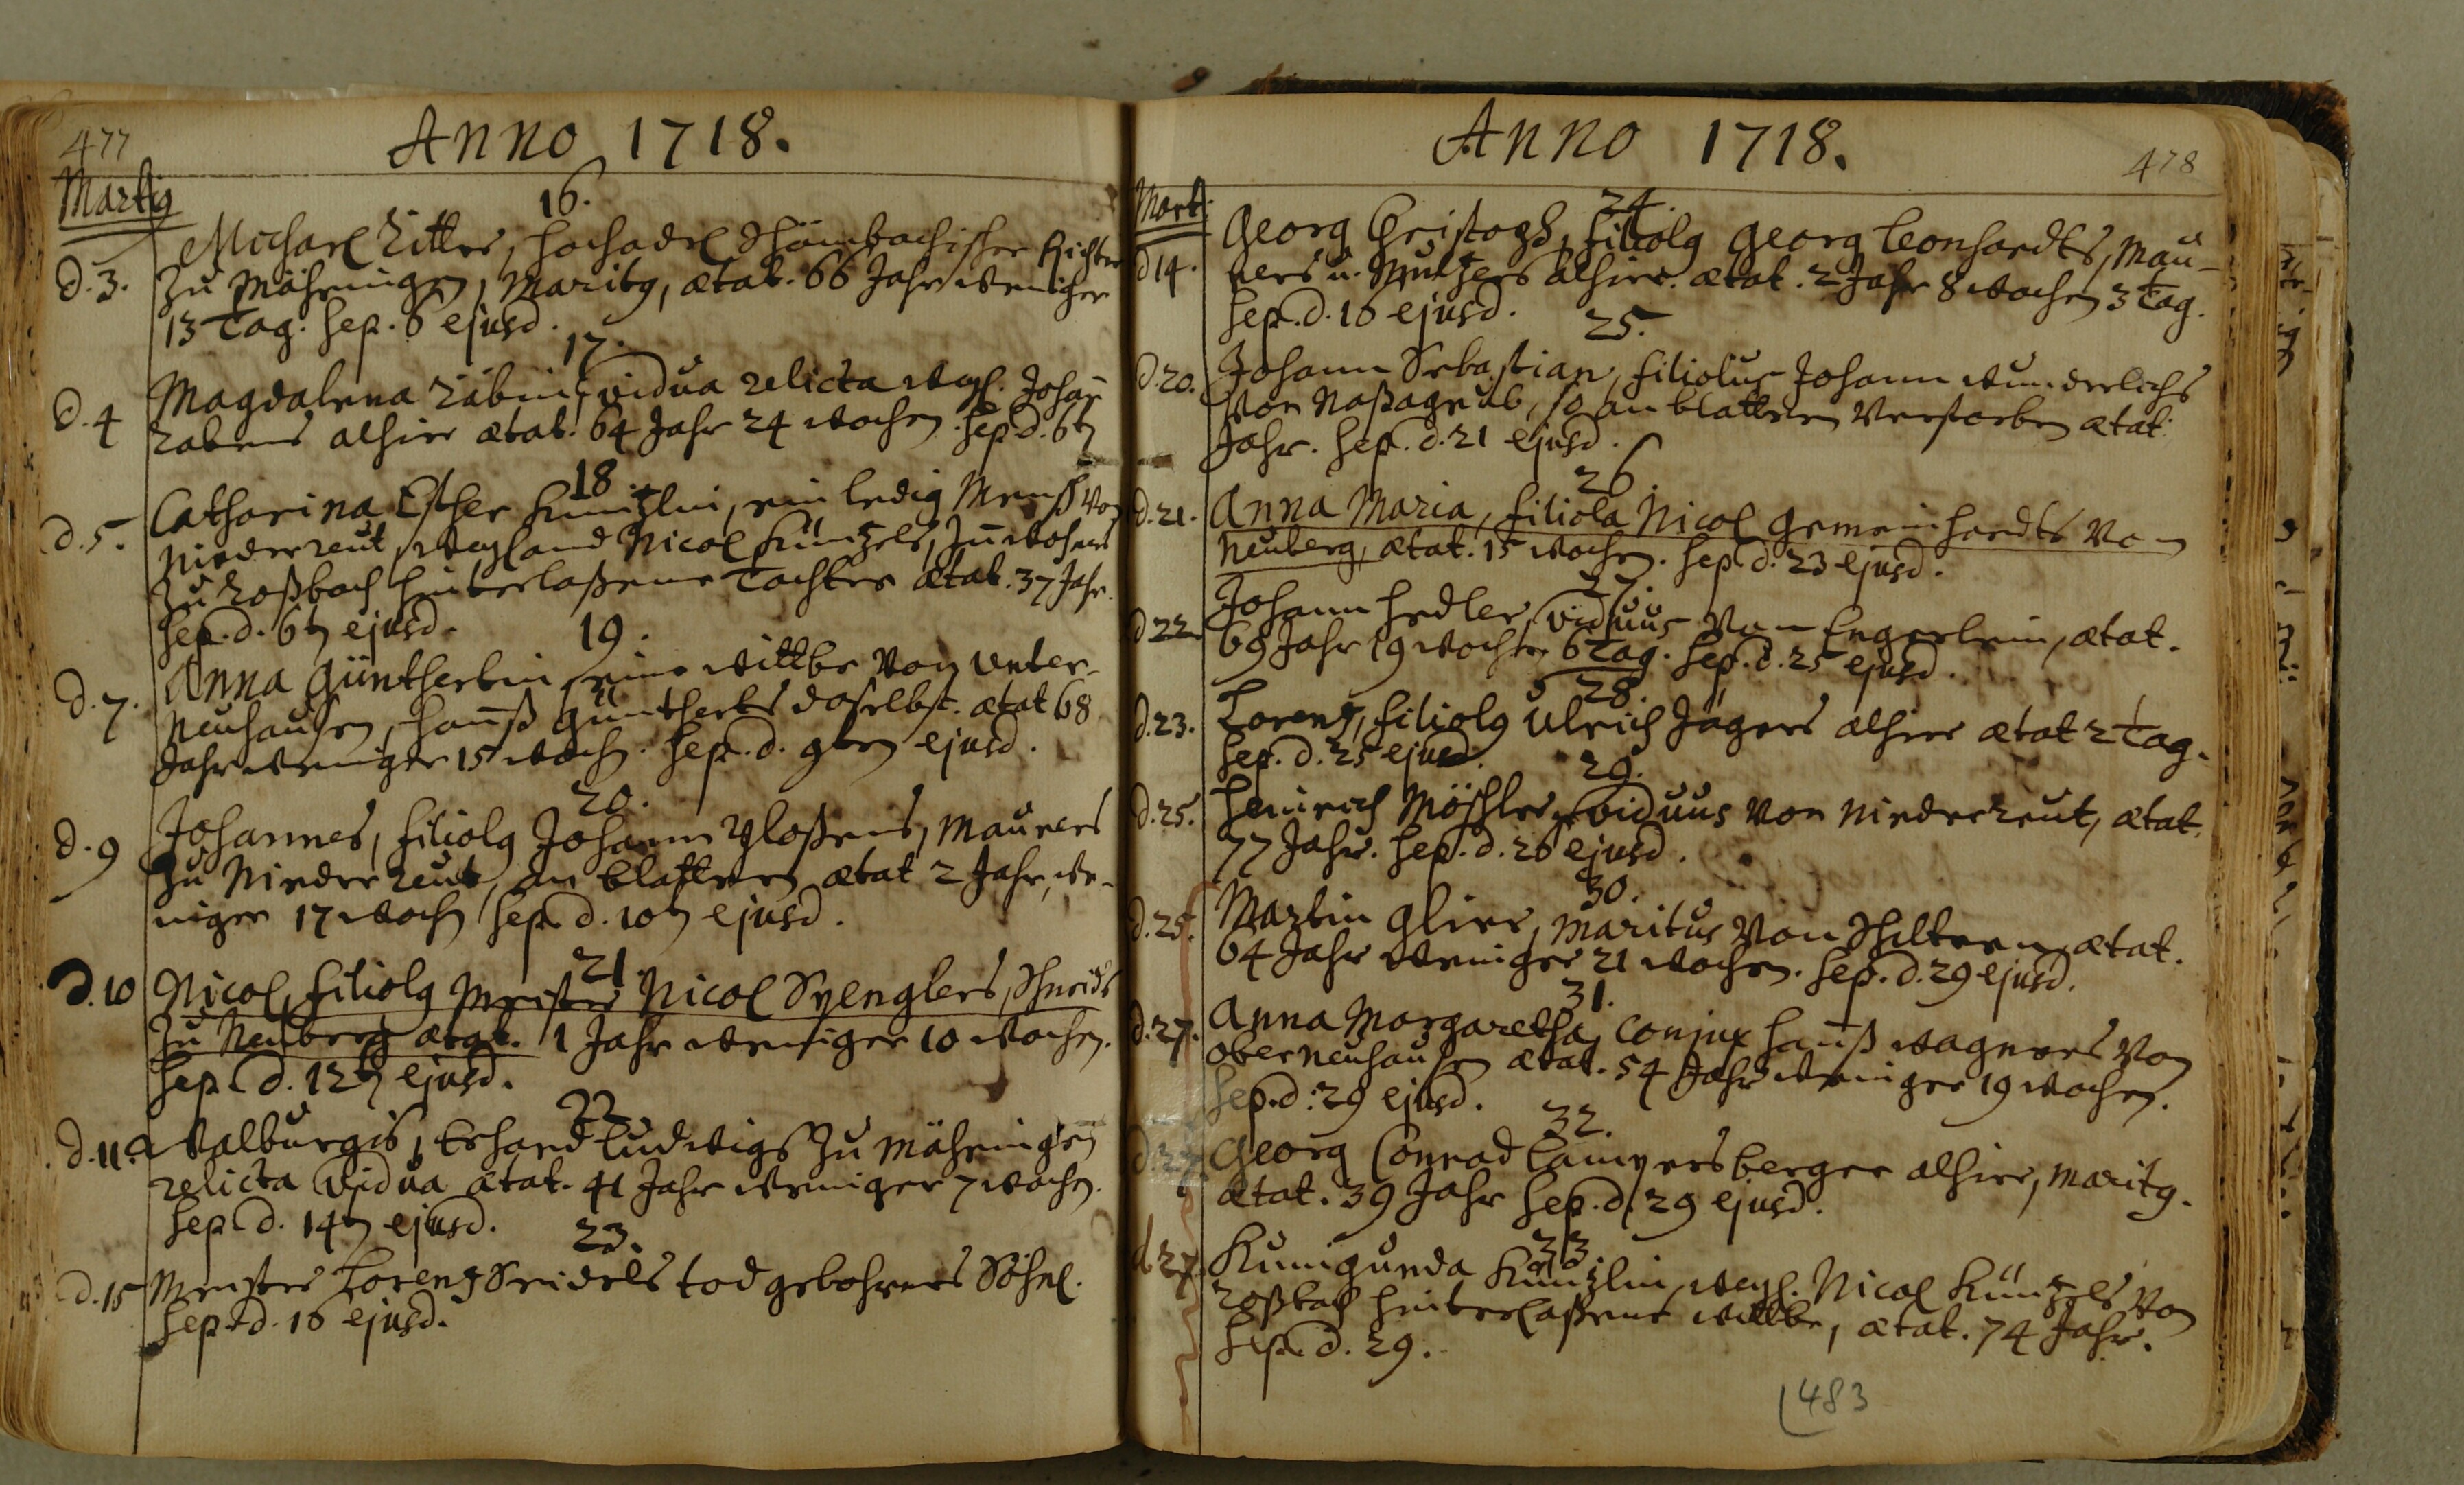 477
Anno 1718.
Martij
16.
d. 3. Michael Ritter, hochadel Schönbachischer Richter
zu Mähringen, maritq, ætat. 66 Jahr weniger
13 Tag. sep. 6 ejusd.
17.
d. 4 Magdalena Räbin, vidua relicta weyl. Johañ
Rabens alhier ætat. 64 Jahr 24 wochen. sep. d. 6tn
18.
d. 5. Catharina Esther Küntzlin, ein ledig Mensch von
Niederreut, weyland Nicol Küntzels, Inwohners
zu Roßbach hinterlaßene Tochter ætat. 37 Jahr.
sep. d. 6tn ejusd.
19.
d. 7. Anna Güntherlin, eine wittbe von Unter-
neuhausen, Hanß Günthers daselbst. ætat 68
Jahr weniger 15 woch. sep. d. 9ten ejusd.
20.
d. 9 Johannes, filiolq Johann Ploßens, Maurers
zu Niederreut, an blattern ætat 2 Jahr, we-
niger 17 woch sep. d. 10tn ejusd.
21.
d. 10 Nicol, filiolq Meister Nicol Spenglers, Schneids
zu Neuberg ætat. 1 Jahr weniger 10 wochen.
sep. d. 12tn ejusd.
22.
d. 11. Walburgis, Erhard Ludwigs zu Mähringen
relicta vidua ætat. 41 Jahr weniger 7 wochen.
sep. d. 14tn ejusd.
23.
d. 15 Meister Lorentz Seidels todgebohrnes Söhnl.
sep. d. 16 ejusd.
Anno 1718.
478
Mart.
24.
d 14. Georg Christoph, filiolq Georg Leonhardts, Mau-
rers u. Multzers alhier. ætat. 2 Jahr 8 wochen 3 Tag.
sep. d. 16 ejusd.
25.
d. 20. Johann Sebastian, filiolus Johann Wunderlichs
von Naßagrub, so an blattern verstorben ætat.
Jahr. sep. d. 21 ejusd.
26.
d. 21. Anna Maria, filiola Nicol Gemeinhardts von
Neuberg, ætat. 15 wochen. sep. d. 23 ejusd.
27.
d 22. Johann Hedler, viduus von Engerlein, ætat.
69 Jahr 19 wochen 6 Tag. sep. d. 25 ejusd.
28.
d. 23. Lorentz, filiolq Ulrich Jägers alhier ætat 2 Tag.
sep. d. 25 ejusd.
29.
d. 25. Heinrich Möschler, viduus von Niederreut, ætat.
77 Jahr. sep. d. 26 ejusd.
30.
d. 25. Martin Glier, maritus von Schiltern, ætat.
64 Jahr weniger 21 wochen. sep. d. 29 ejusd.
31.
d. 27. Anna Margaretha, conjux Hanß Wagners von
Oberneuhausen ætat. 54 Jahr weniger 19 wochen.
sep. d. 29 ejusd.
32.
d. 27. Georg Conrad Lampersberger alhier, maritq.
ætat. 39 Jahr sep. d. 29 ejusd.
33
d 27. Kunigunda Küntzlin, weyl. Nicol Küntzels von
Roßbach hinterlaßene wittbe, ætat. 74 Jahr.
sep. d. 29.
483